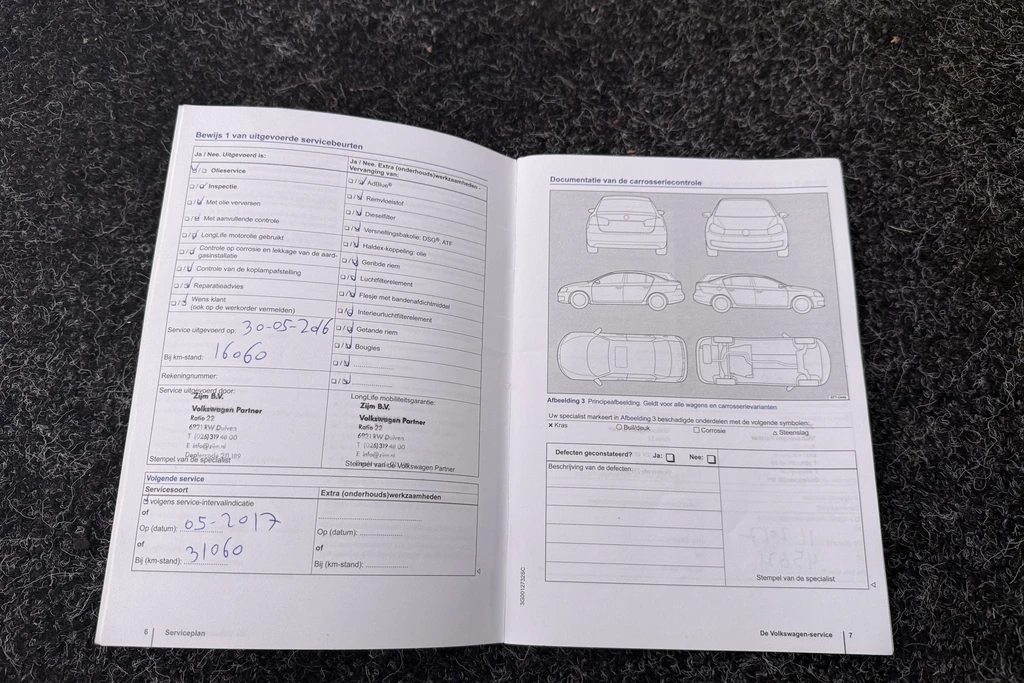 Bewijs 1 van uitgevoerde servicebeurten
Ja / Nee. Uitgevoerd is:
Olieservice
Inspectie
Met olie verversen
Met aanvullende controle
LongLife motorolie gebruikt
Controle op corrosie en lekkage van de aard-
gasinstallatie
Controle van de koplampafstelling
Reparatieadvies
Wens klant
(ook op de werkorder vermelden)
Service uitgevoerd op: 30-05-2016
Bij km-stand: 16060
Rekeningnummer:
Service uitgevoerd door:
Zijm B.V.
Volkswagen Partner
Ratio 22
6921 RW Duiven
T (026) 319 48 00
E info@zijm.nl
Stempel van de specialist
Ja / Nee. Extra (onderhouds)werkzaamheden -
Vervanging van:
AdBlue®
Remvloeistof
Dieselfilter
Versnellingsbakolie: DSG®, ATF
Haldex-koppeling: olie
Geribde riem
Luchtfilterelement
Flesje met bandenafdichtmiddel
Interieurluchtfilterelement
Getande riem
Bougies
LongLife mobiliteitsgarantie:
Zijm B.V.
Volkswagen Partner
Ratio 22
6921 RW Duiven
T (026) 319 48 00
E info@zijm.nl
Stempel van de Volkswagen Partner
Volgende service
Servicesoort
volgens service-intervalindicatie
of
Op (datum): 05-2017
of
Bij (km-stand): 31060
Extra (onderhouds)werkzaamheden
Op (datum):
of
Bij (km-stand):
6 Serviceplan
Documentatie van de carrosseriecontrole
Afbeelding 3 Principeafbeelding. Geldt voor alle wagens en carrosserievarianten
Uw specialist markeert in Afbeelding 3 beschadigde onderdelen met de volgende symbolen:
× Kras ○ Buil/deuk □ Corrosie △ Steenslag
Defecten geconstateerd? Ja: Nee:
Beschrijving van de defecten:
Stempel van de specialist
3G0012732SC
De Volkswagen-service 7